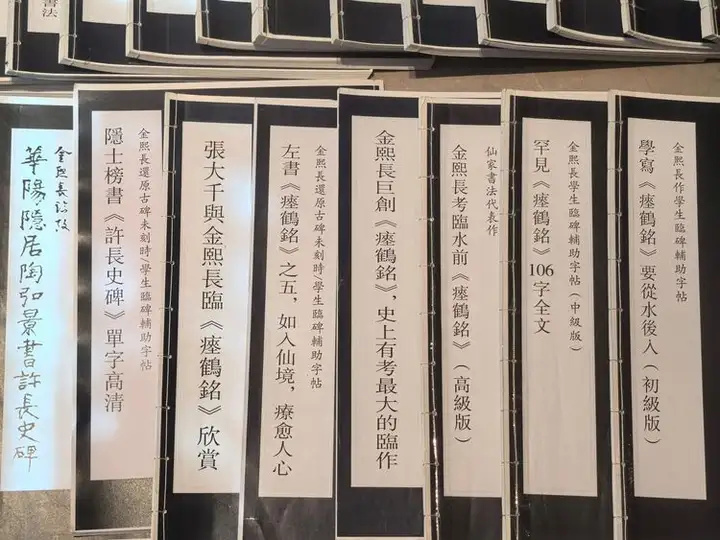 金熙長作學生臨碑輔助字帖
學寫《瘞鶴銘》要從水後入(初級版)
金熙長學生臨碑輔助字帖(中級版)
罕見《瘞鶴銘》106字全文
仙家書法代表作
金熙長考臨水前《瘞鶴銘》(高級版)
金熙長巨創《瘞鶴銘》,史上有考最大的臨作
金熙長還原古碑未刻時/學生臨碑輔助字帖
左書《瘞鶴銘》之五,如入仙境,療愈人心
張大千與金熙長臨《瘞鶴銘》欣賞
金熙長還原古碑未刻時/學生臨碑輔助字帖
隱士榜書《許長史碑》單字高清
金熙長臨
華陽隱居陶弘景書許長史碑
書法